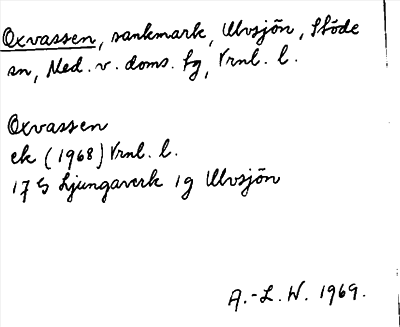 Oxvassen, sankmark, Ulvsjön, Stöde
sn, Med. v. doms. fg, Vrnl. l.
Oxvassen
ek (1968) Vrnl. l.
17 G Ljungaverk 1g Ulvsjön
A.-L. W. 1969.